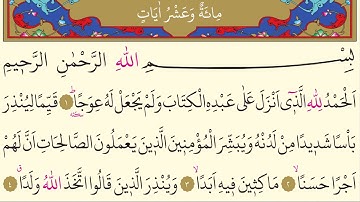 مِائَةٌ وَعَشْرُ اٰيَاتٍ
بِسْمِ اللّٰهِ الرَّحْمٰنِ الرَّحٖيمِ
اَلْحَمْدُ لِلّٰهِ الَّذٖٓي اَنْزَلَ عَلٰى عَبْدِهِ الْكِتَابَ وَلَمْ يَجْعَلْ لَهُ عِوَجًاۜ ﴿١﴾ قَيِّمًا لِيُنْذِرَ
بَاْسًا شَدٖيدًا مِنْ لَدُنْهُ وَيُبَشِّرَ الْمُؤْمِنٖينَ الَّذٖينَ يَعْمَلُونَ الصَّالِحَاتِ اَنَّ لَهُمْ
اَجْرًا حَسَنًاۙ ﴿٢﴾ مَاكِثٖينَ فٖيهِ اَبَدًاۙ ﴿٣﴾ وَيُنْذِرَ الَّذٖينَ قَالُوا اتَّخَذَ اللّٰهُ وَلَدًاۗ ﴿٤﴾